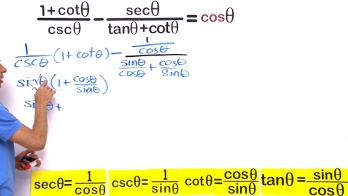 (1+cotθ)/cscθ − secθ/(tanθ+cotθ) = cosθ
1/cscθ (1+cotθ) − (1/cosθ)/(sinθ/cosθ + cosθ/sinθ)
sinθ(1+cosθ/sinθ)
sinθ+
secθ=1/cosθ cscθ=1/sinθ cotθ=cosθ/sinθ tanθ=sinθ/cosθ